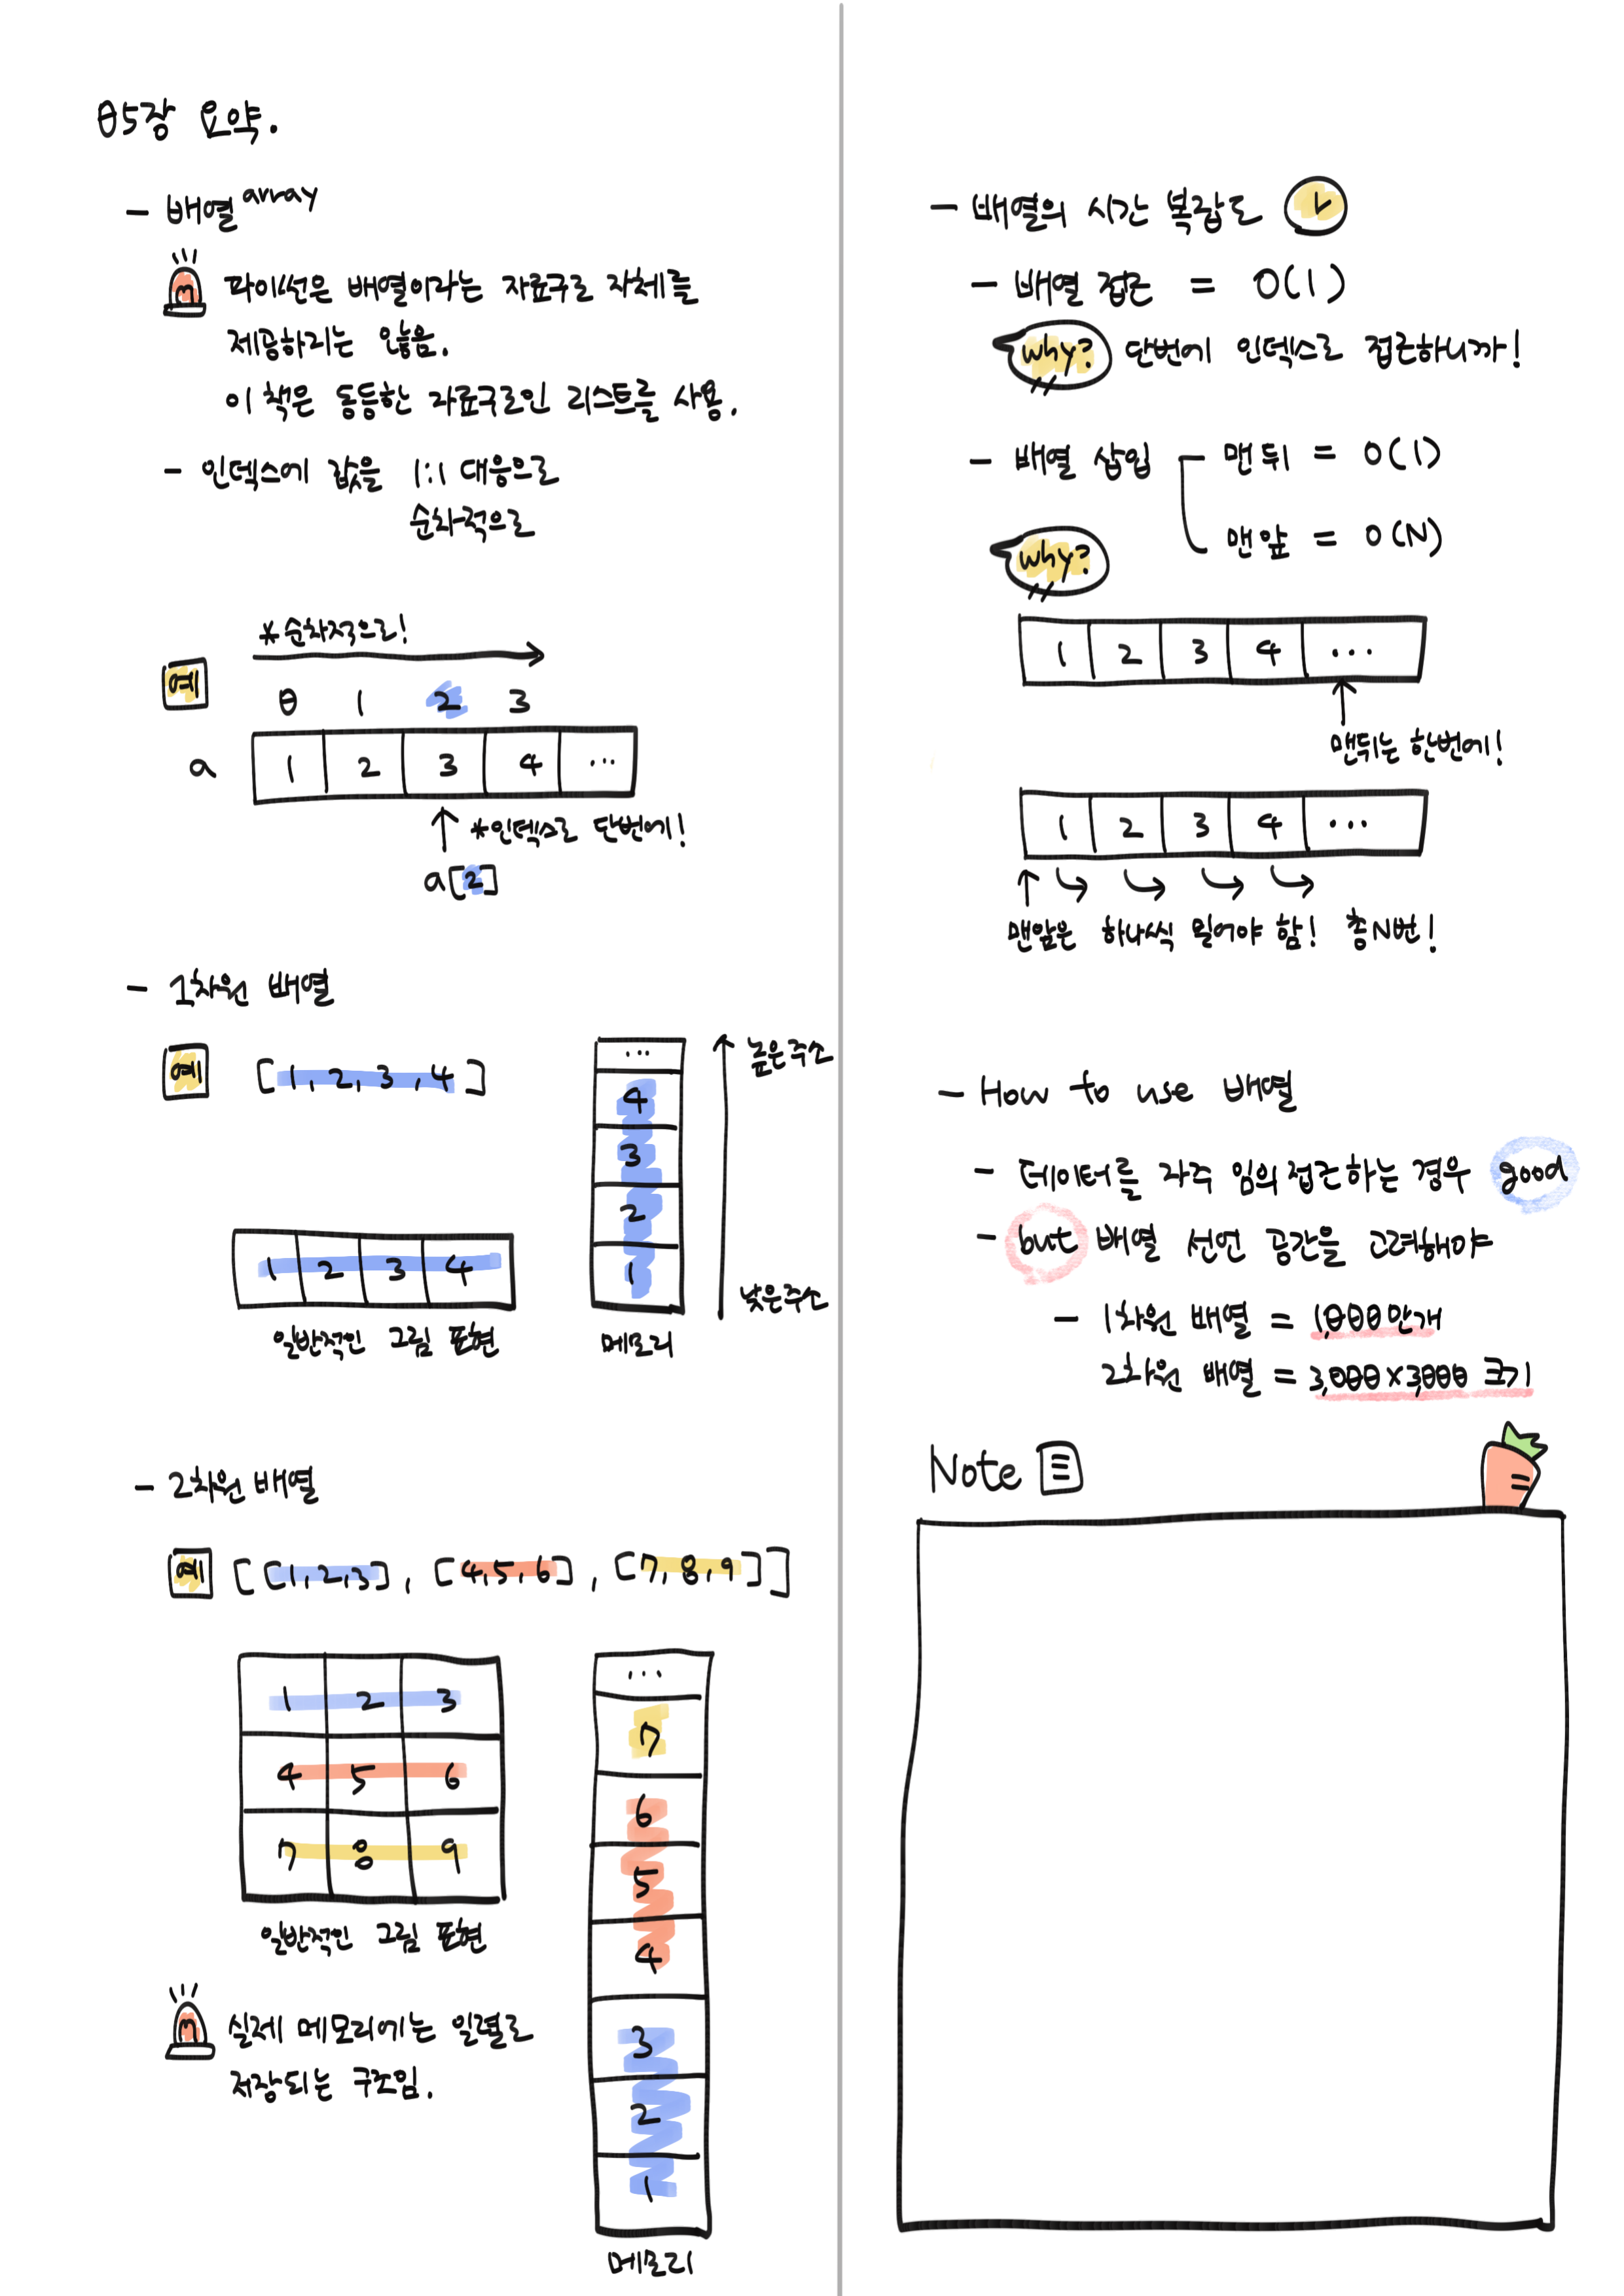 05장 요약.
- 배열 array
파이썬은 배열이라는 자료구조 자체를
제공하지는 않음.
이 책은 동등한 자료구조인 리스트를 사용.
- 인덱스에 값을 1:1 대응으로
순차적으로
*순차적으로!
예
0 1 2 3
a 1 2 3 4 ...
*인덱스로 단번에!
a[2]
- 1차원 배열
예 [1, 2, 3, 4]
1 2 3 4
일반적인 그림 표현
...
4
3
2
1
메모리
높은 주소
낮은 주소
- 2차원 배열
예 [[1, 2, 3], [4, 5, 6], [7, 8, 9]]
1 2 3
4 5 6
7 8 9
일반적인 그림 표현
실제 메모리에는 일렬로
저장되는 구조임.
...
7
6
5
4
3
2
1
메모리
- 배열의 시간 복잡도
- 배열 접근 = O(1)
why? 단번에 인덱스로 접근하니까!
- 배열 삽입 맨 뒤 = O(1)
맨 앞 = O(N)
why?
1 2 3 4 ...
맨뒤는 한번에!
1 2 3 4 ...
맨앞은 하나씩 밀어야 함! 총N번!
- How to use 배열
- 데이터를 자주 임의 접근하는 경우 good
- but 배열 선언 공간을 고려해야
- 1차원 배열 = 1,000만개
2차원 배열 = 3,000×3,000 크기
Note